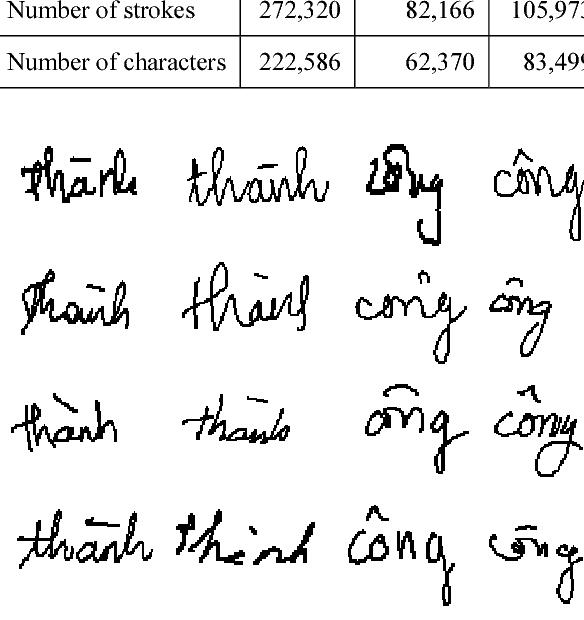 Number of strokes 272,320 82,166 105,973
Number of characters 222,586 62,370 83,499
thành thành công công
thành thành công công
thành thành công công
thành thành công công